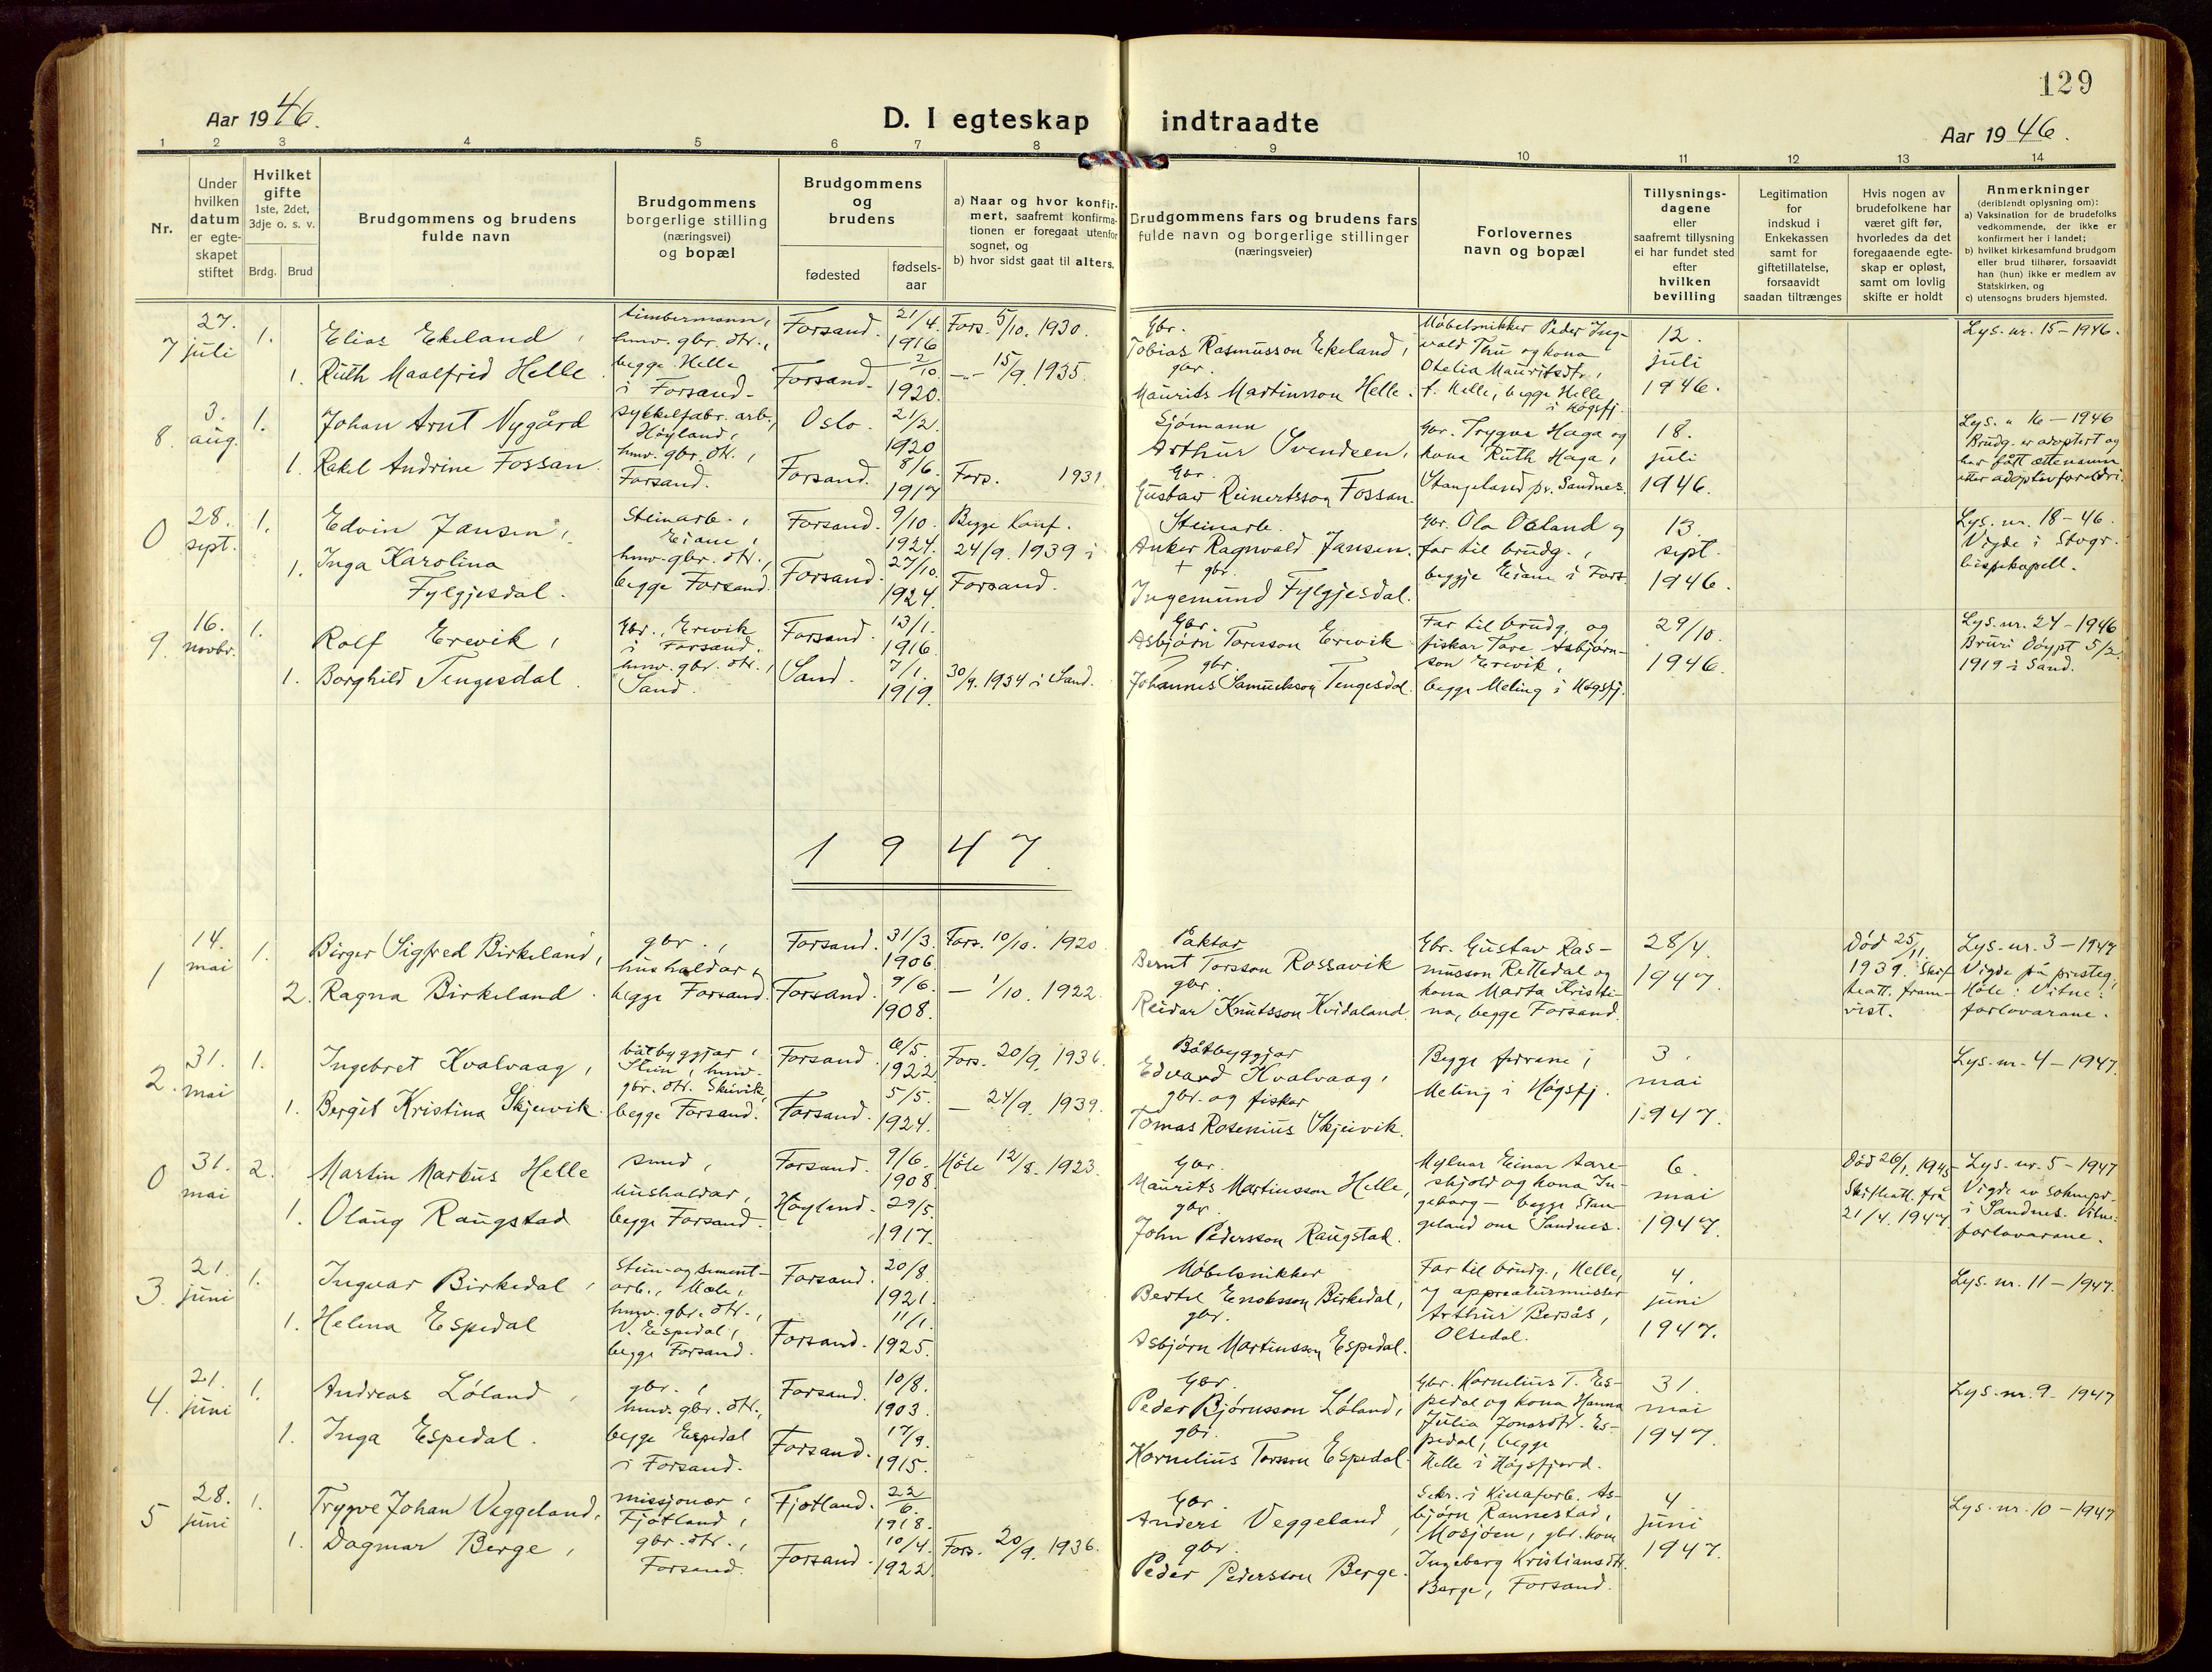 129
Aar 1946.
D. I egteskap indtraadte
Aar 1946.
1 2 3 4 5 6 7 8 9 10 11 12 13 14
Nr.
Under
hvilken
datum
er egte-
skapet
stiftet
Hvilket
gifte
1ste, 2det,
3dje o. s. v.
Brdg. Brud
Brudgommens og brudens
fulde navn
Brudgommens
borgerlige stilling
(næringsvei)
og bopæl
Brudgommens
og
brudens
fødested
fødsels-
aar
a) Naar og hvor konfir-
mert, saafremt konfirma-
tionen er foregaat utenfor
sognet, og
b) hvor sidst gaat til alters.
Brudgommens fars og brudens fars
fulde navn og borgerlige stillinger
(næringsveier)
Forlovernes
navn og bopæl
Tillysnings-
dagene
eller
saafremt tillysning
ei har fundet sted
efter
hvilken
bevilling
Legitimation
for
indskud i
Enkekassen
samt for
giftetillatelse,
forsaavidt
saadan tiltrænges
Hvis nogen av
brudefolkene har
været gift før,
hvorledes da det
foregaaende egte-
skap er opløst,
samt om lovlig
skifte er holdt
Anmerkninger
(deriblendt oplysning om):
a) Vaksination for de brudefolks
vedkommende, der ikke er
konfirmert her i landet;
b) hvilket kirkesamfund brudgom
eller brud tilhører, forsaavidt
han (hun) ikke er medlem av
Statskirken, og
c) utensogns bruders hjemsted.
7
27.
juli
1.
Elias Ekeland,
1. Ruth Maalfrid Helle
timbermann,
hmv. gbr. dtr.,
begge Helle
i Forsand.
Forsand. 21/4. 1916
Forsand. 2/10 1920.
Fors. 5/10. 1930.
— 15/9. 1935.
Gbr.
Tobias Rasmusson Ekeland,
gbr.
Maurits Martinsson Helle.
Møbelsnikker Peder Ing-
vald Thu og kona
Otelia Mauritsdtr.,
f. Helle, begge Helle
i Høgsfj.
12.
juli
1946.
Lys. nr. 15 - 1946.
8.
3.
aug.
1.
Johan Arnt Nygård
1. Rakel Andrine Fossan.
sykkelfabr. arb.,
Høyland,
hmv. gbr. dtr.,
Forsand.
Oslo. 21/2. 1920
Forsand. 8/6. 1917
Fors. 1931.
Sjømann
Arthur Svendsen,
Gbr.
Gustav Reinertsson Fossan.
Gbr. Trygve Haga og
kona Ruth Haga,
Stangeland pr. Sandnes.
18.
juli
1946.
Lys. " 16 - 1946
Brudg. er adoptert og
har fått ettenamn
etter adoptivforeldri.
0
28.
sept.
1.
Edvin Jansen,
1. Inga Karolina
Fylgjesdal.
Steinarb.,
Eiane,
hmv. gbr. dtr.,
begge Forsand.
Forsand. 9/10. 1924.
Forsand. 27/10. 1924.
Begge konf.
24/9. 1939 i
Forsand.
Steinarb.
Anker Ragnvald Jansen.
+ gbr.
Ingemund Fylgjesdal.
Gbr. Ola Osland og
far til brudg.,
begge Eiane i Fors.
13.
sept.
1946.
Lys. nr. 18 - 46.
Vigde i Stvgr.
bispekapell.
9.
16.
novbr.
1.
Rolf Erevik,
1. Borghild Tengesdal.
Gbr., Erevik
i Forsand.
hmv. gbr. dtr.,
Sand.
Forsand. 13/1. 1916.
Sand. 7/1. 1919.
30/9. 1934 i Sand.
Gbr.
Asbjørn Toresson Erevik
gbr.
Johannes Samuelson Tengesdal.
Far til brudg. og
fiskar Tore Asbjørn-
son Erevik,
begge Meling i Høgsfj.
29/10.
1946.
Lys. nr. 24 - 1946
Bruri døypt 5/2.
1919 i Sand.
1947.
1
14.
mai
1.
Birger Sigfred Birkeland,
2. Ragna Birkeland.
gbr.,
husholdar,
begge Forsand.
Forsand. 31/3. 1906.
Forsand. 9/6. 1908.
Fors. 10/10. 1920.
— 1/10. 1922.
Faktor
Bernt Torsson Rossavik
gbr.
Reidar Knutsson Kvidaland.
Gbr. Gustav Ras-
musson Rettedal og
kona Marta Kristi-
na, begge Forsand.
28/4.
1947.
Død 25/11.
1939. Skif-
teatt. fram-
vist.
Lys. nr. 3 - 1947
Vigde på presteg.
Høle. Vitne:
forlovarane.
2.
31.
mai
1.
Ingebret Kvalvaag,
1. Bergit Kristina Skjeivik.
båtbyggjar,
hmv.
gbr. dtr. Skeivik,
begge Forsand.
Forsand. 6/5. 1922
Forsand. 5/5. 1924.
Fors. 20/9. 1936.
— 24/9. 1939.
Båtbyggjar
Edvard Kvalvaag,
gbr. og fiskar
Tomas Rosenius Skjeivik.
Begge fedrane,
Meling i Høgsfj.
3.
mai
1947.
Lys. nr. 4 - 1947.
0
31.
mai
2.
Martin Markus Helle
1. Olaug Raugstad
smed,
husholdar,
begge Forsand.
Forsand. 9/6. 1908.
Høyland. 29/5. 1917.
Høle 12/8. 1923.
Gbr.
Maurits Martinsson Helle,
gbr.
John Pedersson Raugstad.
Mylnar Einar Aare-
skjold og kona In-
geborg - begge Stan-
geland om Sandnes.
6.
mai
1947.
Død 26/1. 1945
Skifteatt. frå
21/4. 1947.
Lys. nr. 5 - 1947
Vigde av sokneprs.
i Sandnes. Vitne:
forlovarane.
3.
21.
juni
1.
Ingvar Birkedal,
1. Helena Espedal
Stein- og sement-
arb., Mæle,
hmv. gbr. dtr.,
N. Espedal,
begge Forsand.
Forsand. 20/8. 1921.
Forsand. 11/1. 1925.
Møbelsnikker
Bertel Enoksson Birkedal,
gbr.
Asbjørn Martinsson Espedal.
Far til brudg., Helle,
og
Arthur Bersås,
Oltedal.
4.
juni
1947.
Lys. nr. 11 - 1947.
4.
21.
juni
1.
Andreas Løland,
1. Inga Espedal.
gbr.,
hmv. gbr. dtr.,
begge Espedal
i Forsand.
Forsand. 10/8. 1903.
Forsand. 17/9. 1915.
Gbr.
Peder Bjørnsson Løland,
gbr.
Kornelius Torsson Espedal.
Gbr. Kornelius T. Es-
pedal og kona Hanna
Julia Jonasdtr. Es-
pedal, begge
Helle i Høgsfjord.
31.
mai
1947.
Lys. nr. 9 - 1947
5
28.
juni
1.
Trygve Johan Veggeland,
1. Dagmar Berge,
missjonær,
Fjotland,
gbr. dtr.,
Forsand.
Fjotland. 22/6. 1918.
Forsand. 10/4. 1922.
Fors. 20/9. 1936.
Gbr.
Anders Veggeland,
gbr.
Peder Pedersson Berge.
Sekr. i Kinaforb. As-
bjørn Rannestad,
Mosjøen, gbr. kona
Ingeborg Kristiansdtr.
Berge, Forsand.
4.
juni
1947.
Lys. nr. 10 - 1947